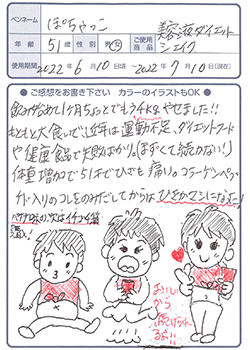 ペンネーム ぽちゃっこ
年齢 51歳 性別 男・女
美容液ダイエット
シェイク
使用期間 2022年6月10日頃～2022年7月10日(現在)
◎ご感想をお書き下さい カラーのイラストもOK
飲み始めて1ヶ月ちょっとでもう4kgやせました!!
もともと大食いで、近年は運動不足、ダイエットフード
や健康食品で失敗ばかり。(まずくて続かない!)
体重増加で51才でひざも痛い。コラーゲンペプ
チド入りのコレをのみだしてからは
次はイチゴ
満腹!
おいし
から
続けられ
るよ!!